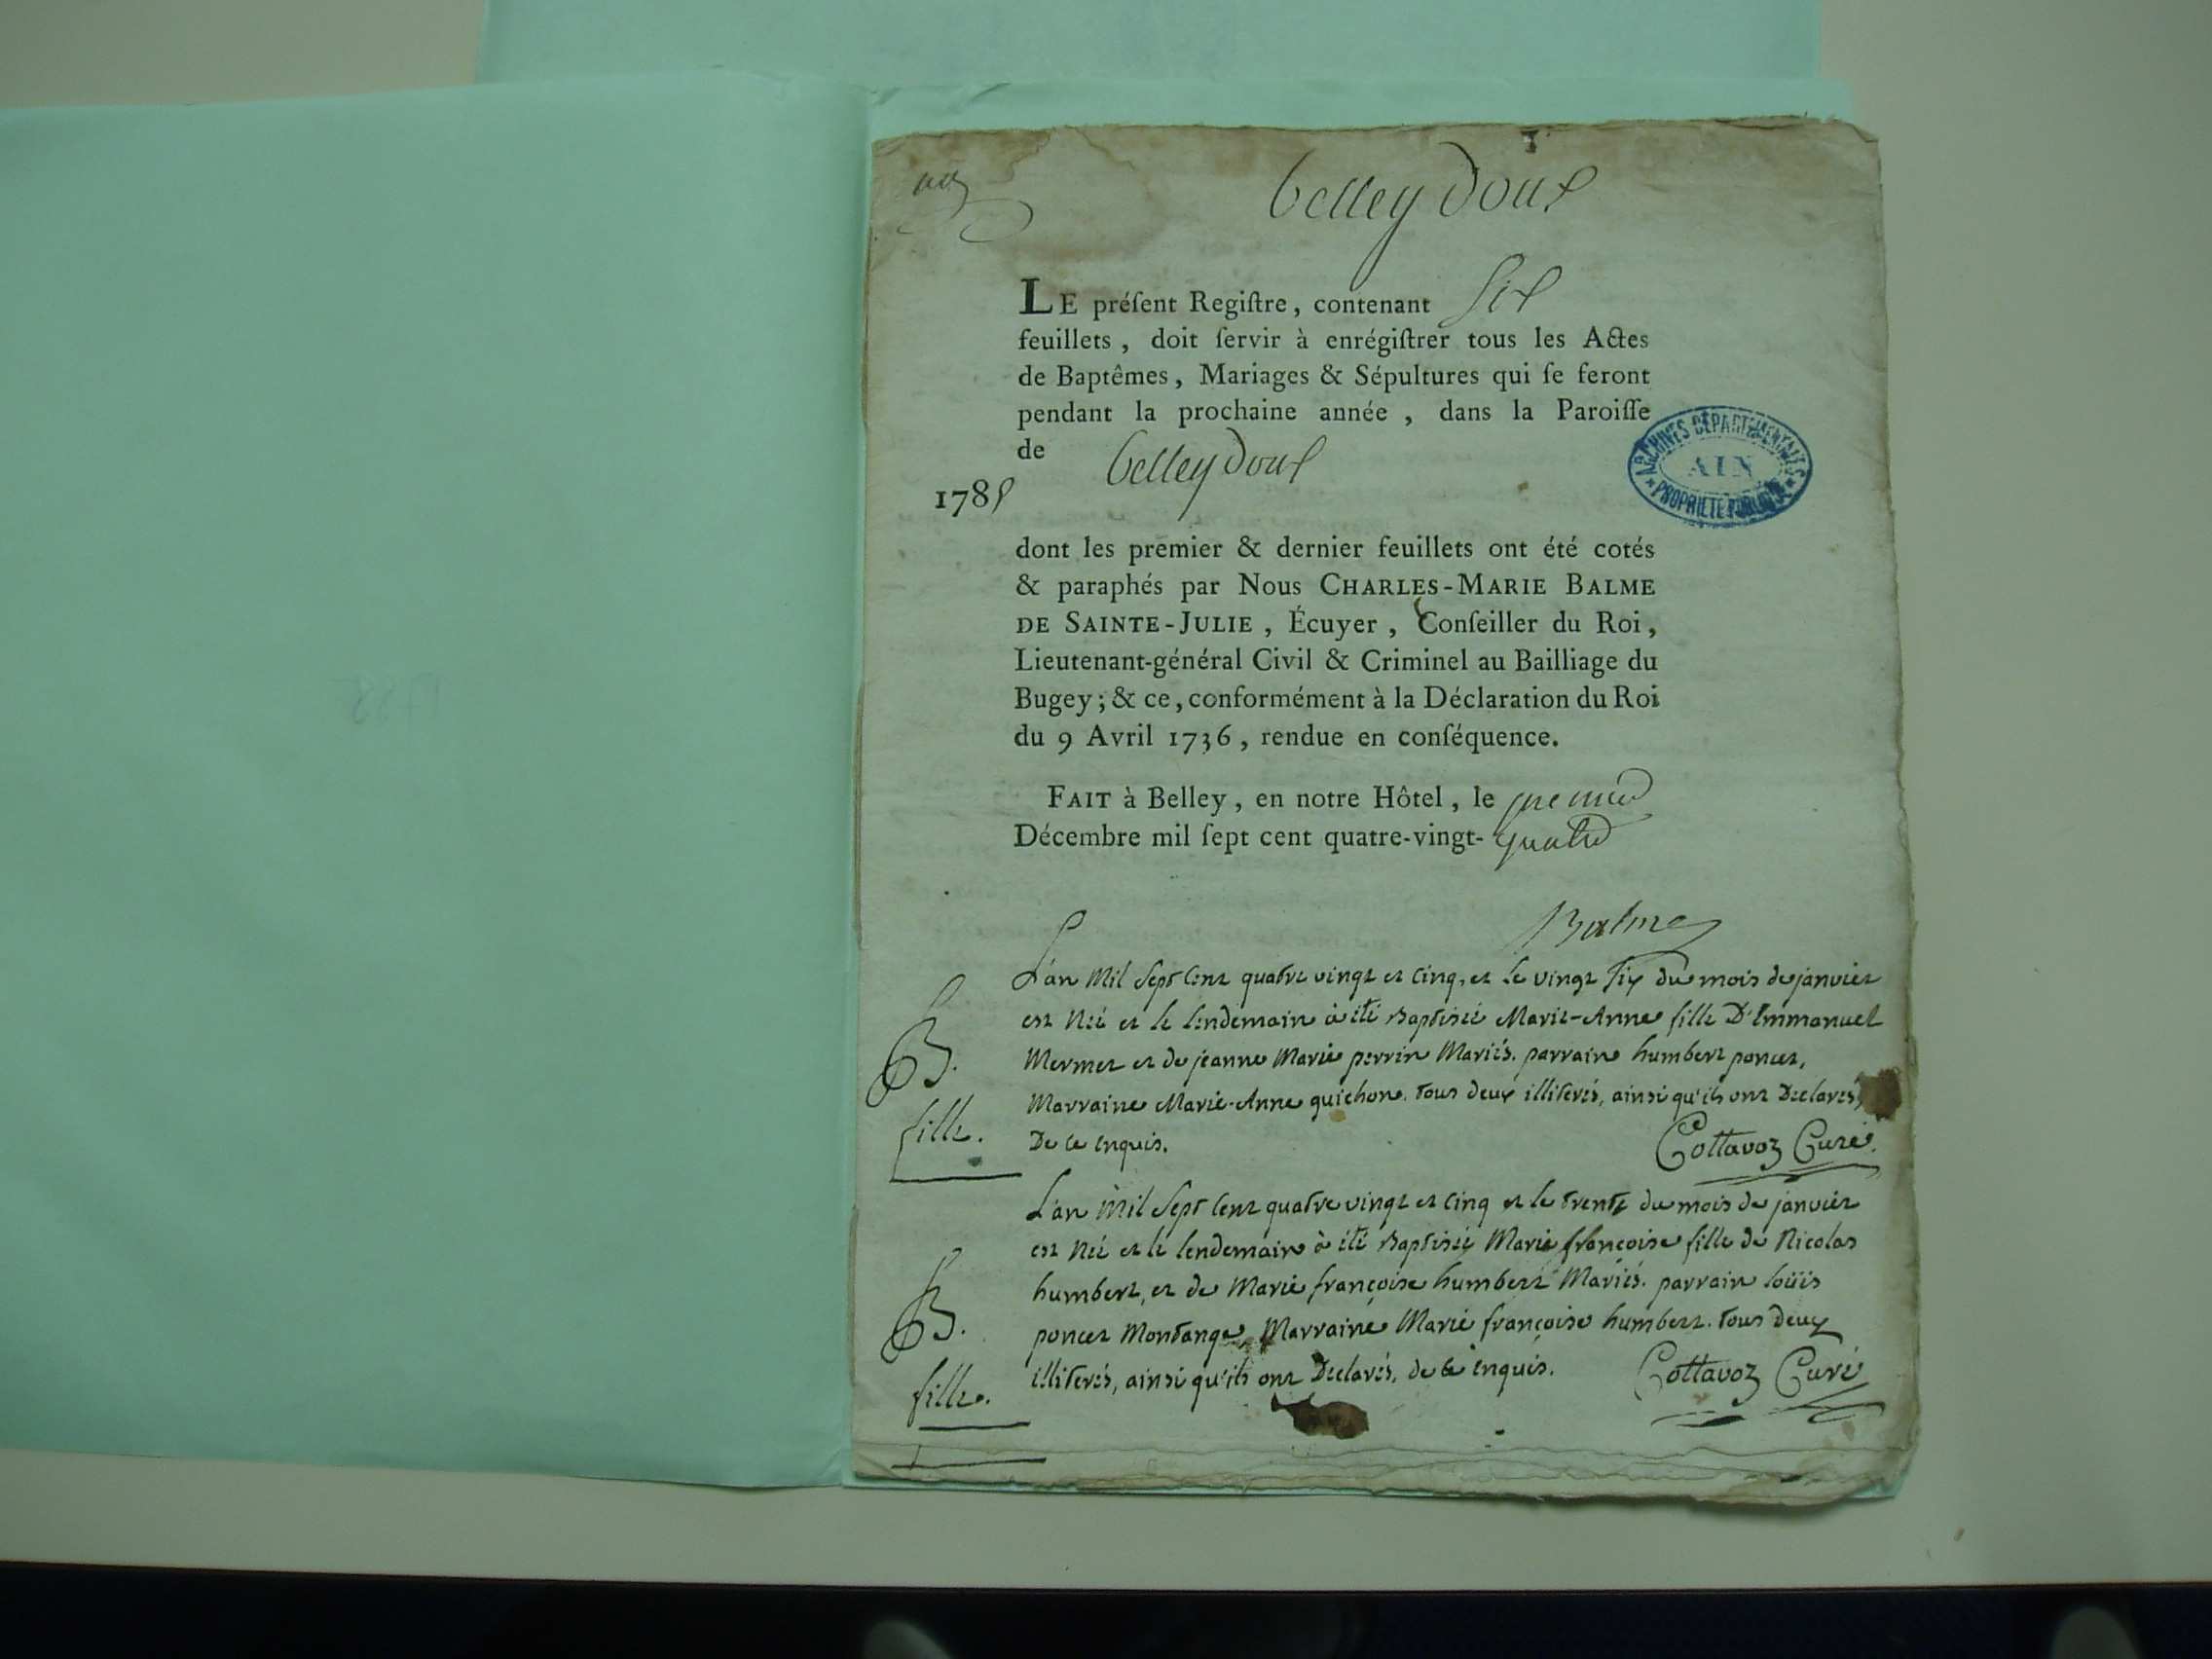 Belleydoux
LE préſent Regiſtre, contenant Six
feuillets, doit ſervir à enrégiſtrer tous les Actes
de Baptêmes, Mariages & Sépultures qui ſe feront
pendant la prochaine année, dans la Paroiſſe
de Belleydoux
1785
ARCHIVES DÉPARTEMENTALES
AIN
* PROPRIÉTÉ PUBLIQUE *
dont les premier & dernier feuillets ont été cotés
& paraphés par Nous CHARLES-MARIE BALME
DE SAINTE-JULIE, Écuyer, Conſeiller du Roi,
Lieutenant-général Civil & Criminel au Bailliage du
Bugey; & ce, conformément à la Déclaration du Roi
du 9 Avril 1736, rendue en conſéquence.
FAIT à Belley, en notre Hôtel, le premier
Décembre mil ſept cent quatre-vingt-quatre
Balme
L'an Mil Sept Cent quatre vingt et Cinq, et le vingt Six du mois de janvier
est Néé et le lendemain à été Baptiséé Marie-Anne fille D'Immanuel
Mermet et de jeanne Marie perrin Mariés. parrain humbert poncet,
Marraine Marie-Anne guichon. tous deux illiterés, ainsi qu'ils ont Declarés,
De ce enquis.
Cottavoz Curé.
B.
fille.
L'an Mil Sept Cent quatre vingt et Cinq et le trente du mois de janvier
est Néé et le lendemain à été Baptiséé Marie françoise fille de Nicolas
humbert, et de Marie françoise humbert Mariés. parrain loüis
poncet Montange, Marraine Marie françoise humbert. tous deux
illiterés, ainsi qu'ils ont Declarés, de ce enquis.
Cottavoz Curé
B.
fille.